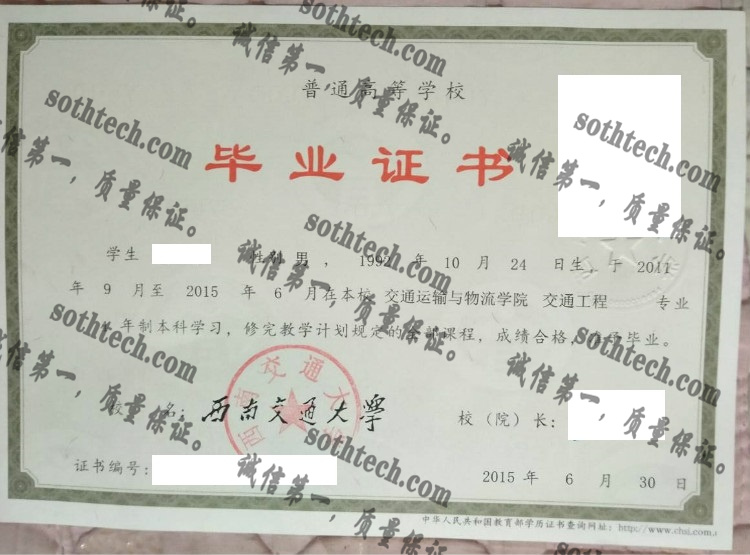 普通高等学校
毕业证书
学生 性别 男 , 1992 年 10 月 24 日生,于 2011
年 9 月至 2015 年 6 月在本校 交通运输与物流学院 交通工程 专业
年制本科学习,修完教学计划规定的全部课程,成绩合格,准予毕业。
校 名: 西南交通大学
校(院)长:
证书编号:
2015 年 6 月 30 日
中华人民共和国教育部学历证书查询网址: http://www.chsi.com.
西南交通大学
sothtech.com
诚信第一,质量保证。
sothtech.com
诚信第一,质量保证。
sothtech.com
诚信第一,质量保证。
sothtech.com
诚信第一,质量保证。
sothtech.com
诚信第一,质量保证。
sothtech.com
诚信第一,质量保证。
sothtech.com
诚信第一,质量保证。
sothtech.com